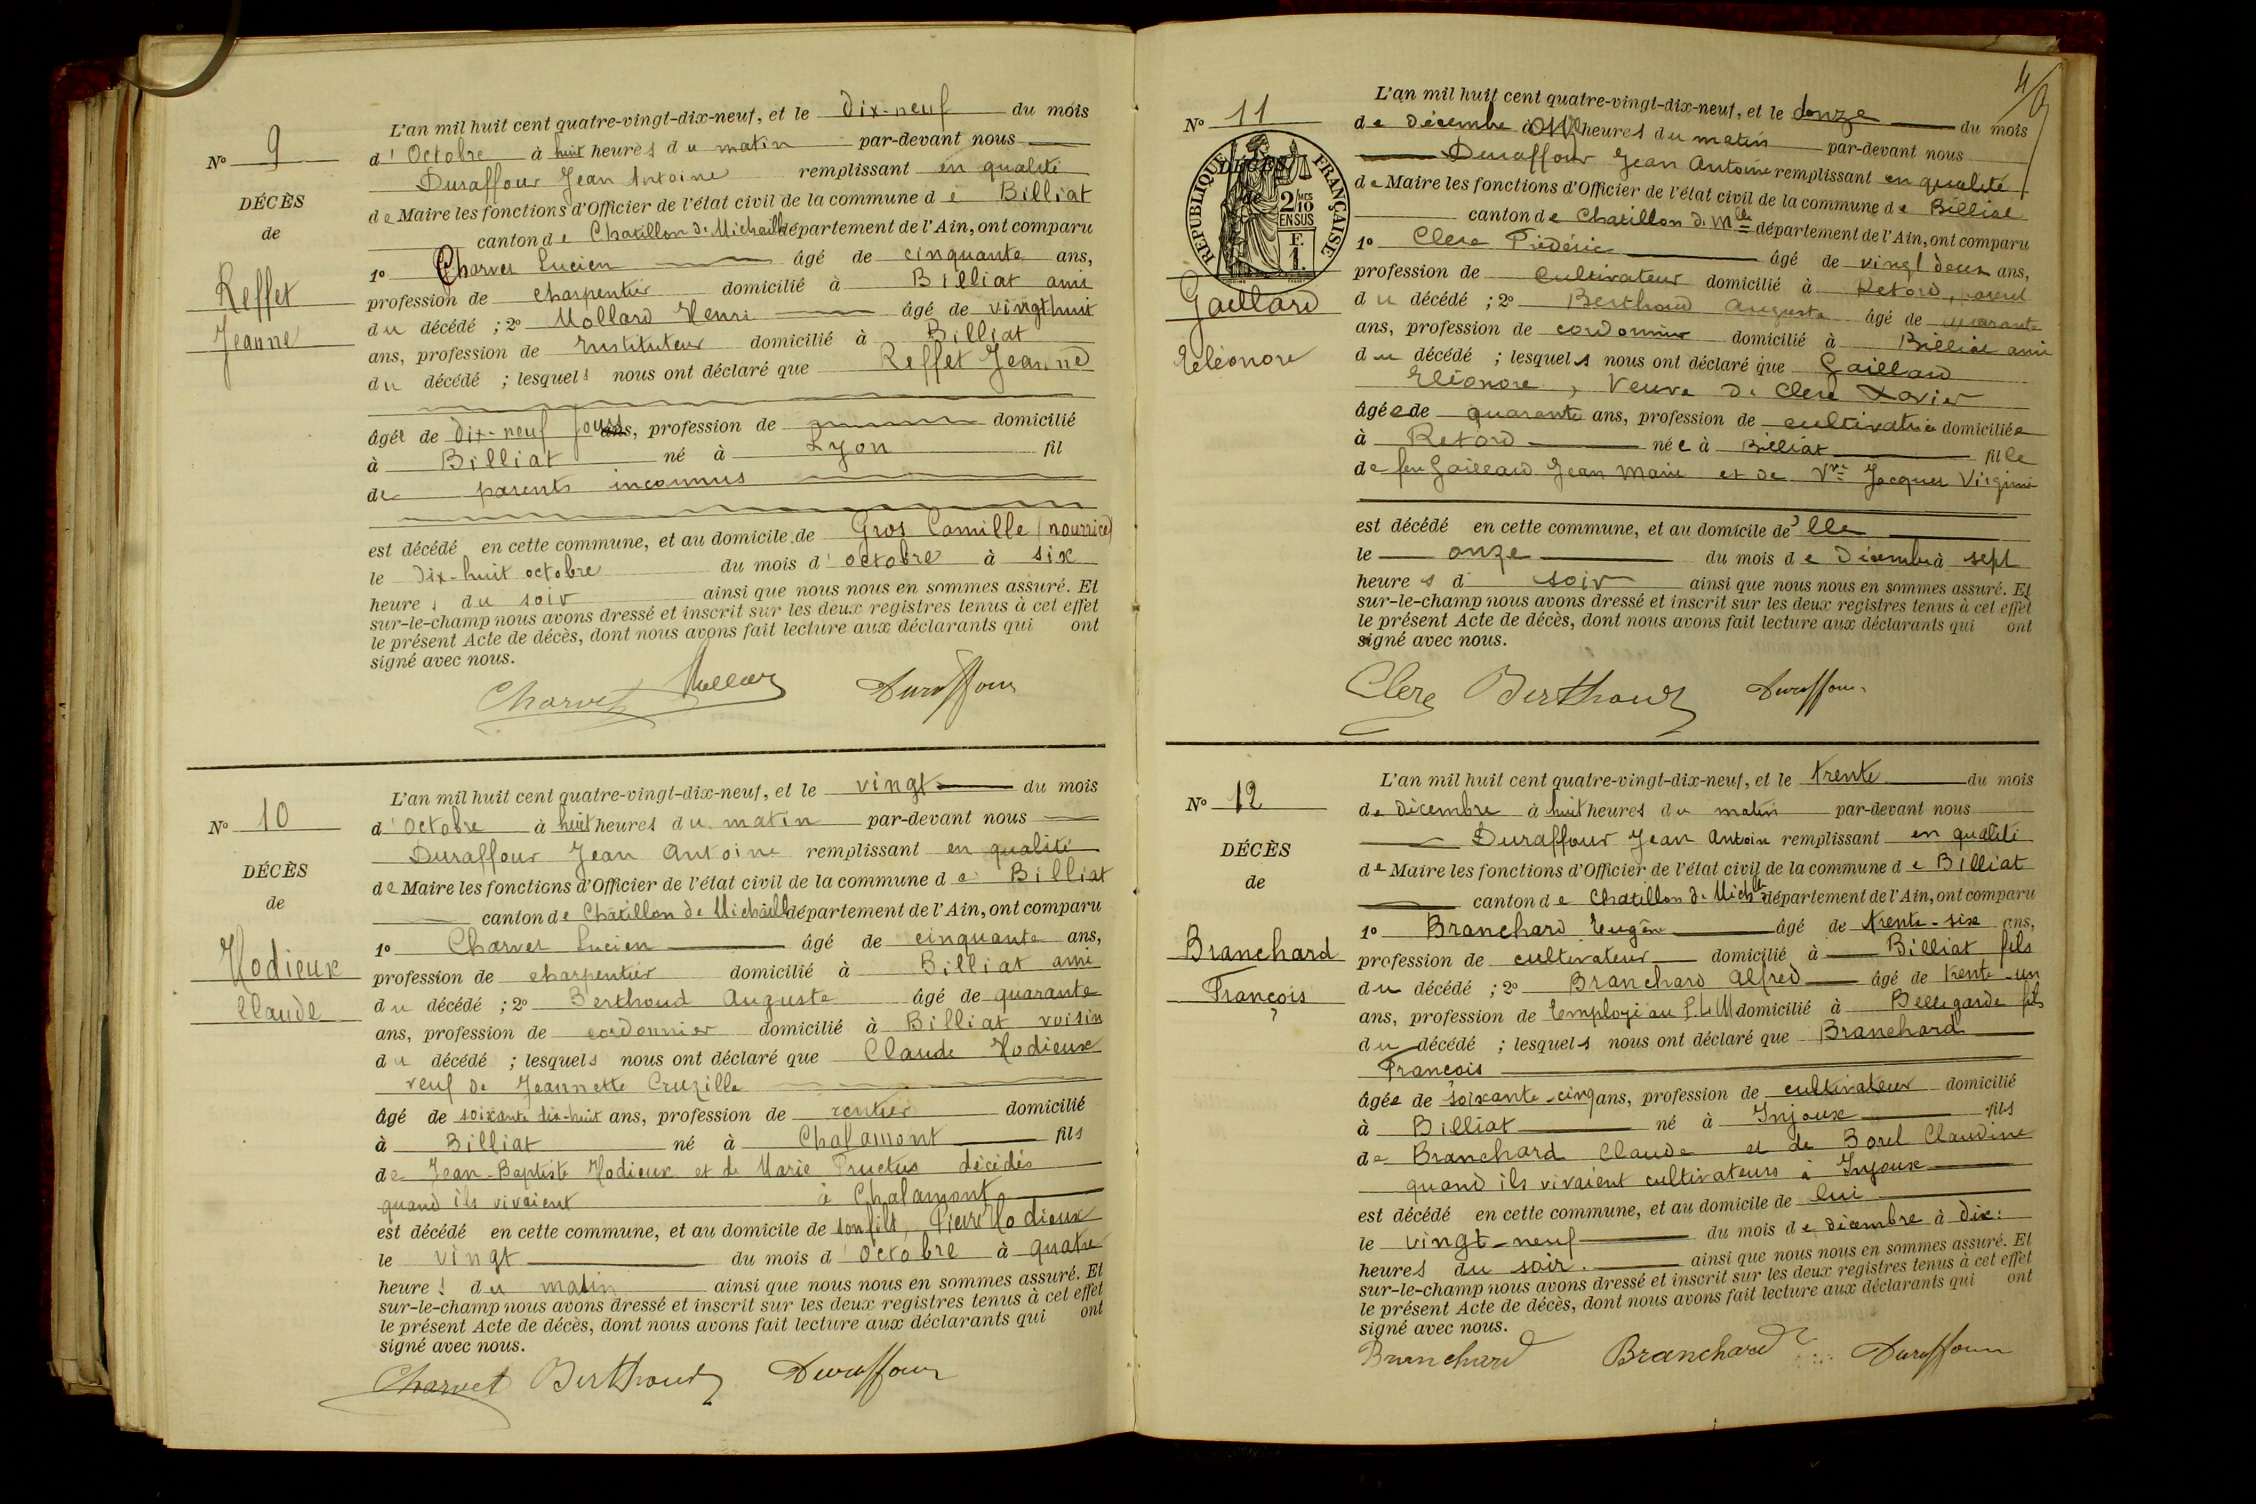 N° 9
DÉCÈS
de
Reffet
Jeanne
L'an mil huit cent quatre-vingt-dix-neuf, et le dix-neuf du mois
d'Octobre à huit heures du matin par-devant nous
Duraffour Jean Antoine remplissant en qualité
de Maire les fonctions d'Officier de l'état civil de la commune de Billiat
canton de Chatillon de Michaille département de l'Ain, ont comparu
1° Charvet Lucien âgé de cinquante ans,
profession de charpentier domicilié à Billiat ami
du décédé ; 2° Mollard Henri âgé de vingt huit
ans, profession de Instituteur domicilié à Billiat
du décédé ; lesquels nous ont déclaré que Reffet Jeanne
âgée de dix-neuf jours, profession de domicilié
à Billiat né à Lyon fil
de parents inconnus
est décédé en cette commune, et au domicile de Gros Camille (nourrice)
le dix-huit octobre du mois d'octobre à six
heures du soir ainsi que nous nous en sommes assuré. Et
sur-le-champ nous avons dressé et inscrit sur les deux registres tenus à cet effet
le présent Acte de décès, dont nous avons fait lecture aux déclarants qui ont
signé avec nous.
Charvet Mollard Duraffour
N° 10
DÉCÈS
de
Hodieux
Claude
L'an mil huit cent quatre-vingt-dix-neuf, et le vingt du mois
d'Octobre à huit heures du matin par-devant nous
Duraffour Jean Antoine remplissant en qualité
de Maire les fonctions d'Officier de l'état civil de la commune de Billiat
canton de Châtillon de Michaille département de l'Ain, ont comparu
1° Charvet Lucien âgé de cinquante ans,
profession de charpentier domicilié à Billiat ami
du décédé ; 2° Berthoud Auguste âgé de quarante
ans, profession de cordonnier domicilié à Billiat voisin
du décédé ; lesquels nous ont déclaré que Claude Hodieux
veuf de Jeannette Cruzille
âgé de soixante dix-huit ans, profession de rentier domicilié
à Billiat né à Chalamont fils
de Jean-Baptiste Hodieux et de Marie Fructus décédés
quand ils vivaient à Chalamont
est décédé en cette commune, et au domicile de son fils, Pierre Hodieux
le vingt du mois d'octobre à quatre
heures du matin ainsi que nous nous en sommes assuré. Et
sur-le-champ nous avons dressé et inscrit sur les deux registres tenus à cet effet
le présent Acte de décès, dont nous avons fait lecture aux déclarants qui ont
signé avec nous.
Charvet Berthoud Duraffour
N° 11
RÉPUBLIQUE FRANÇAISE
2/10 MES
EN SUS
F. 1.
Gaillard
Eléonore
L'an mil huit cent quatre-vingt-dix-neuf, et le douze du mois
de Décembre à onze heures du matin par-devant nous
Duraffour Jean Antoine remplissant en qualité
de Maire les fonctions d'Officier de l'état civil de la commune de Billiat
canton de Chatillon de Mlle département de l'Ain, ont comparu
1° Clerc Frédéric âgé de vingt deux ans,
profession de cultivateur domicilié à Retord,
du décédé ; 2° Berthoud Auguste âgé de quarante
ans, profession de cordonnier domicilié à Billiat ami
du décédé ; lesquels nous ont déclaré que Gaillard
Eléonore, Veuve de Clerc Xavier
âgée de quarante ans, profession de cultivatrice domiciliée
à Retord née à Billiat fille
de feu Gaillard Jean Marie et de Vve Jacquet Virginie
est décédé en cette commune, et au domicile de elle
le onze du mois de Décembre à sept
heures d soir ainsi que nous nous en sommes assuré. Et
sur-le-champ nous avons dressé et inscrit sur les deux registres tenus à cet effet
le présent Acte de décès, dont nous avons fait lecture aux déclarants qui ont
signé avec nous.
Clerc Berthoud Duraffour
N° 12
DÉCÈS
de
Branchard
François
L'an mil huit cent quatre-vingt-dix-neuf, et le trente du mois
de Décembre à huit heures du matin par-devant nous
Duraffour Jean Antoine remplissant en qualité
de Maire les fonctions d'Officier de l'état civil de la commune de Billiat
canton de Chatillon de Michlle département de l'Ain, ont comparu
1° Branchard Eugène âgé de trente-six ans,
profession de cultivateur domicilié à Billiat fils
du décédé ; 2° Branchard Alfred âgé de trente-un
ans, profession de Employé au P.L.M domicilié à Bellegarde fils
du décédé ; lesquels nous ont déclaré que Branchard
François
âgée de soixante-cinq ans, profession de cultivateur domicilié
à Billiat né à Injoux fils
de Branchard Claude et de Borel Claudine
quand ils vivaient cultivateurs à Injoux
est décédé en cette commune, et au domicile de lui
le vingt-neuf du mois de décembre à dix
heures du soir. ainsi que nous nous en sommes assuré. Et
sur-le-champ nous avons dressé et inscrit sur les deux registres tenus à cet effet
le présent Acte de décès, dont nous avons fait lecture aux déclarants qui ont
signé avec nous.
Branchard Branchard Duraffour